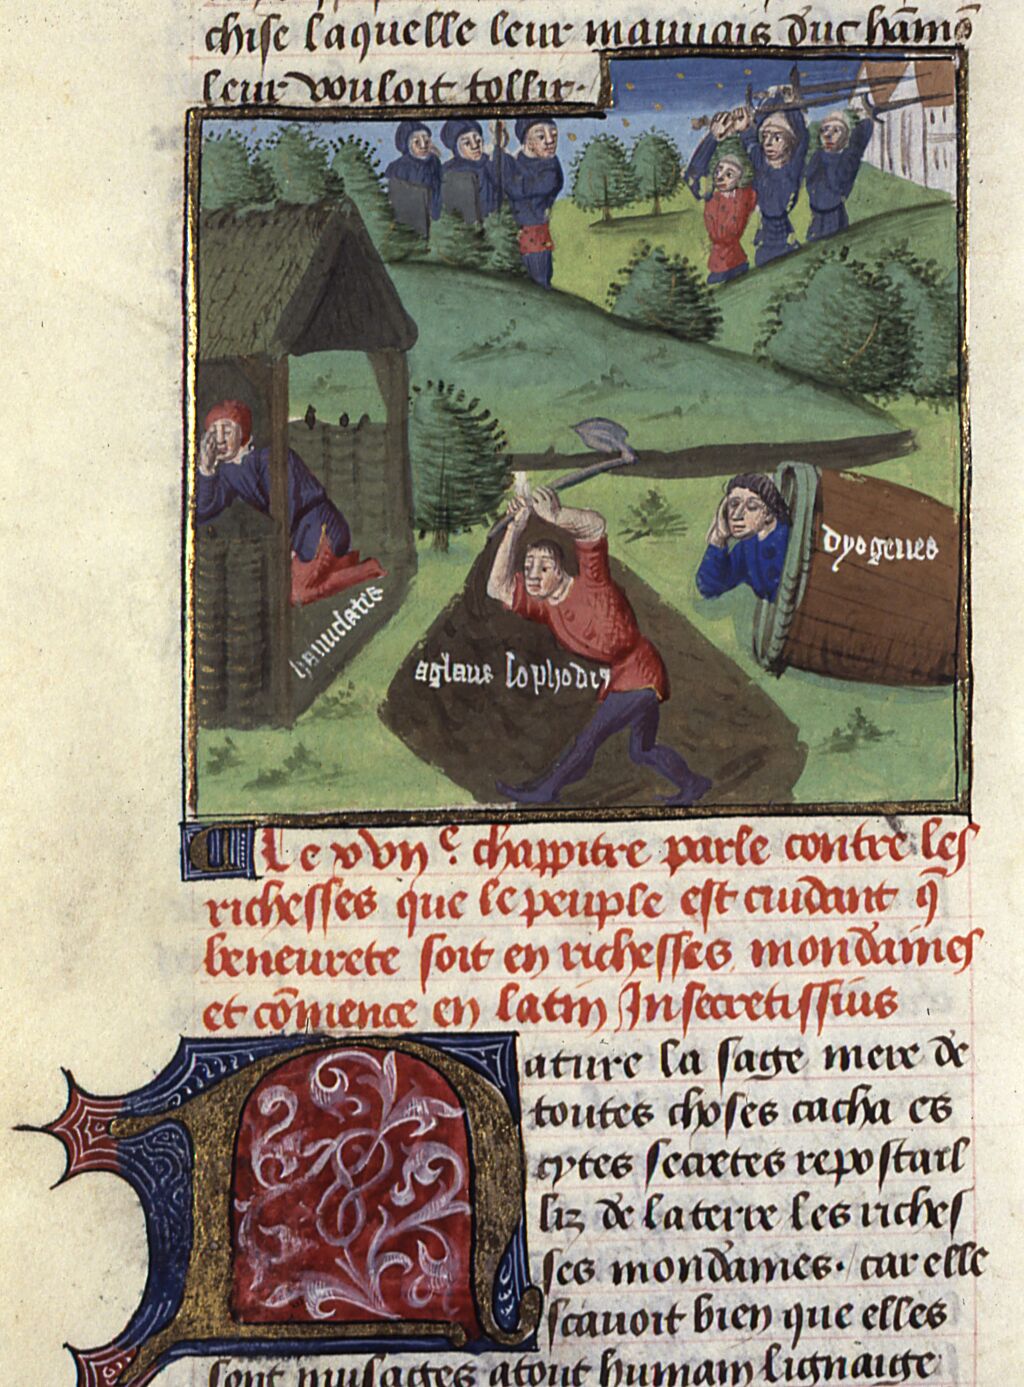 chise laquelle leur mauuais duc hāmō
leur vouloit tollir.
amuclates
dyogenes
aglaus sophodiꝯ
Le xvıȷ.ͤ chappitre parle contre les
richesses que le peuple est cuidant q̄
beneurete soit en richesses mondaines
et cōmence en latin In secretissius
Nature la sage mere de
toutes choses cacha es
crtes secretes repostail
liz de la terre les riches
ses mondaines. car elle
scauoit bien que elles
sont nuisages a tout humain lignaige